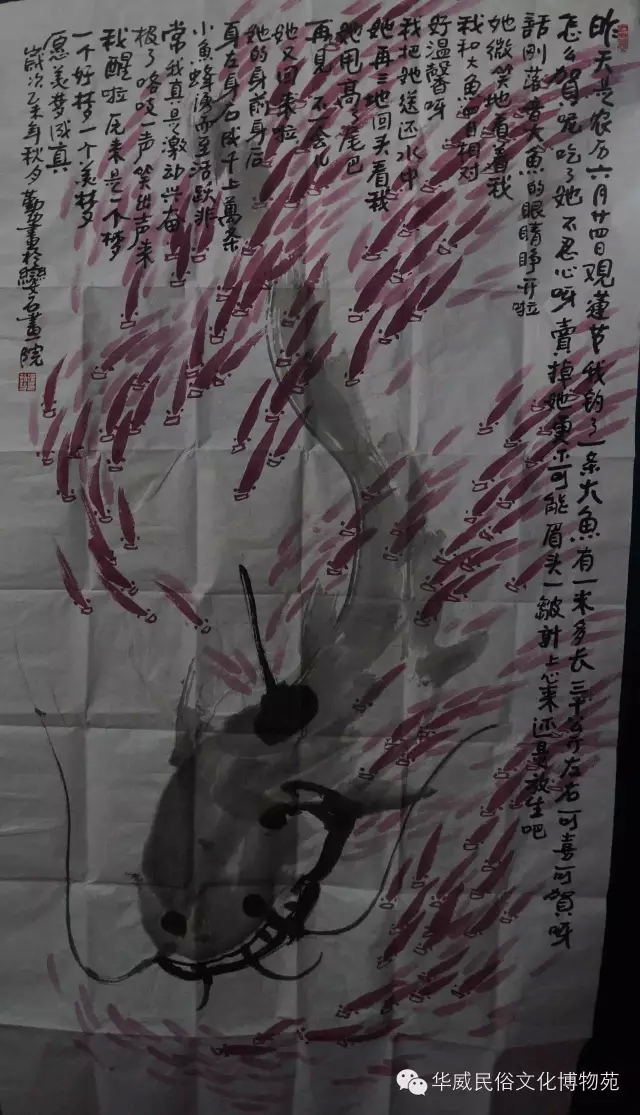 昨天是农历六月廿四日观莲节我钓了一条大魚有一米多长三十公斤左右可喜可賀呀
怎么賀呢吃了她不忍心呀賣掉她更不可能眉头一皺計上心来还是放生吧
話刚落音大魚的眼睛睁开啦
她微笑地看着我
我和大魚四目相对
好温馨呀
我把她送还水中
她再三地回头看我
她甩高了尾巴
再見不一会儿
她又回来啦
她的身前身后
身左身右成千上萬条
小魚蜂湧而至活跃非
常我真是激动兴奋
极了咯吱一声笑出声来
我醒啦原来是一个梦
一个好梦一个美梦
愿美梦成真
歲次乙未年秋月勤
華威民俗文化博物苑